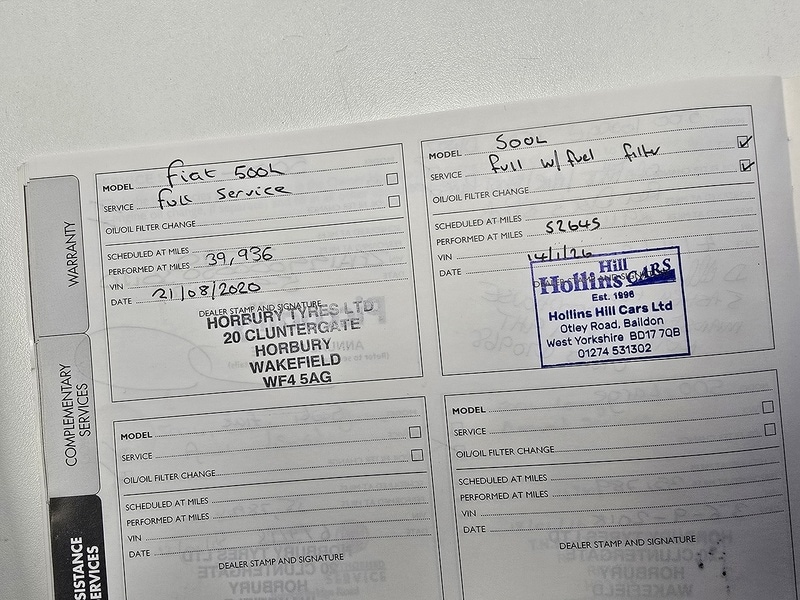 WARRANTY
COMPLEMENTARY
SERVICES
SISTANCE
ERVICES
MODEL fiat 500L
SERVICE full service
OIL/OIL FILTER CHANGE
SCHEDULED AT MILES
PERFORMED AT MILES 39,936
VIN
DATE 21/08/2020
DEALER STAMP AND SIGNATURE
HORBURY TYRES LTD
20 CLUNTERGATE
HORBURY
WAKEFIELD
WF4 5AG
MODEL 500L
SERVICE full w/ fuel filter
OIL/OIL FILTER CHANGE
SCHEDULED AT MILES
PERFORMED AT MILES 52645
VIN
DATE 14/1/26
Hill
Hollins CARS
Est. 1996
Hollins Hill Cars Ltd
Otley Road, Baildon
West Yorkshire BD17 7QB
01274 531302
MODEL
SERVICE
OIL/OIL FILTER CHANGE
SCHEDULED AT MILES
PERFORMED AT MILES
VIN
DATE
DEALER STAMP AND SIGNATURE
MODEL
SERVICE
OIL/OIL FILTER CHANGE
SCHEDULED AT MILES
PERFORMED AT MILES
VIN
DATE
DEALER STAMP AND SIGNATURE